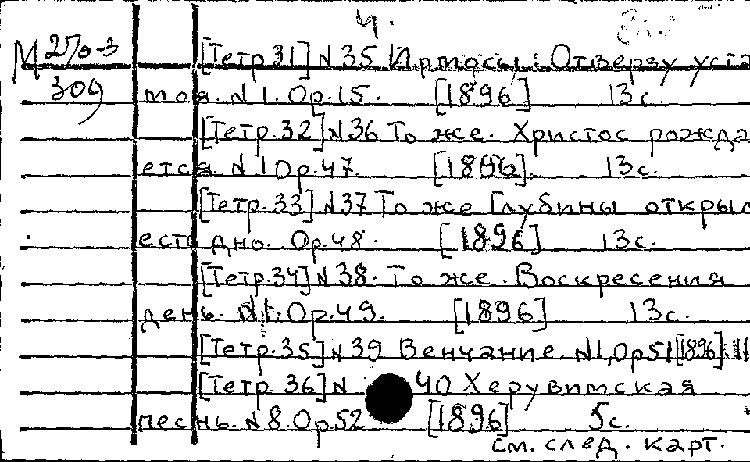 4.
М 270-3 [Тетр 31] N 35 Ирмосы: Отверзу уста
309 моя. N 1. Ор. 15. [1896] 13 с.
[Тетр. 32] N 36 То же. Христос рожда
ется. N 1 Ор. 47. [1896]. 13 с.
[Тетр. 33] N 37 То же Глубины открыл
есть дно. Ор. 48. [1896] 13 с.
[Тетр. 34] N 38. То же. Воскресения
день. N 1. Ор. 49. [1896] 13 с.
[Тетр. 35] N 39 Венчание. N 1, Ор 51 [1896]
[Тетр 36] N 40 Херувимская
песнь. N 8. Ор. 52 [1896] 5 с.
См. след. карт.